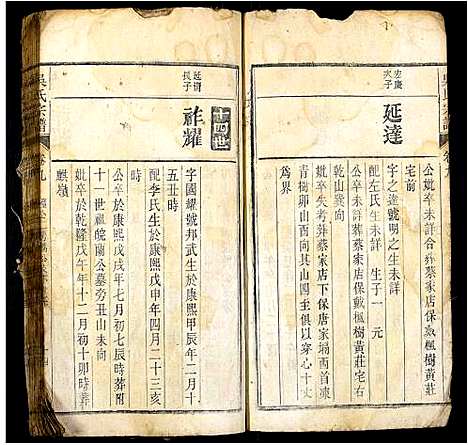 公妣卒未詳合葬蔡家店保戴楓樹黃莊
宅前
宏慶
次子
延達
字之達號明之生未詳
配左氏生卒未詳 生子一 元
公卒未詳葬蔡家店戴楓樹黃莊宅右
乾山巽向
妣卒失考葬蔡家店下保唐家塌西首凍
青樹卯山酉向其山四具俱以穿心十丈
為界
吳氏宗譜
卷九
延
長子
十四世
祚耀
字國耀號邦武生於康熙甲辰年二月十
五丑時
配李氏生於康熙戊申年四月二十三亥
時
公卒於康熙戊戌年七月初七辰時葬附
十一世祖皖蘭公墓旁丑山未向
妣卒於乾隆戊午年十二月初十卯時葬
麒嶺